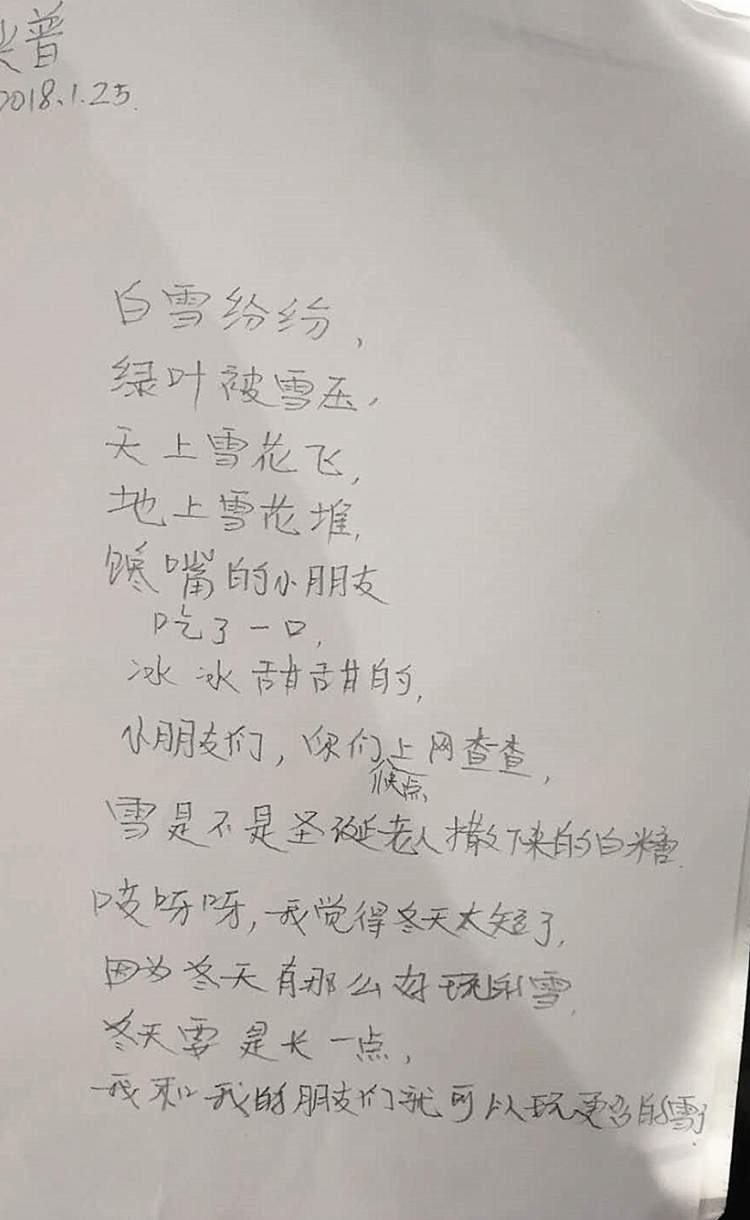 普
2018.1.25.
白雪纷纷,
绿叶被雪压,
天上雪花飞,
地上雪花堆,
馋嘴的小朋友
吃了一口,
冰冰甜甜的,
小朋友们,你们上网查查,
快点
雪是不是圣诞老人撒下来的白糖.
吱呀呀,我觉得冬天太短了,
因为冬天有那么好玩的雪,
冬天要是长一点,
我和我的朋友们就可以玩更多的雪了.